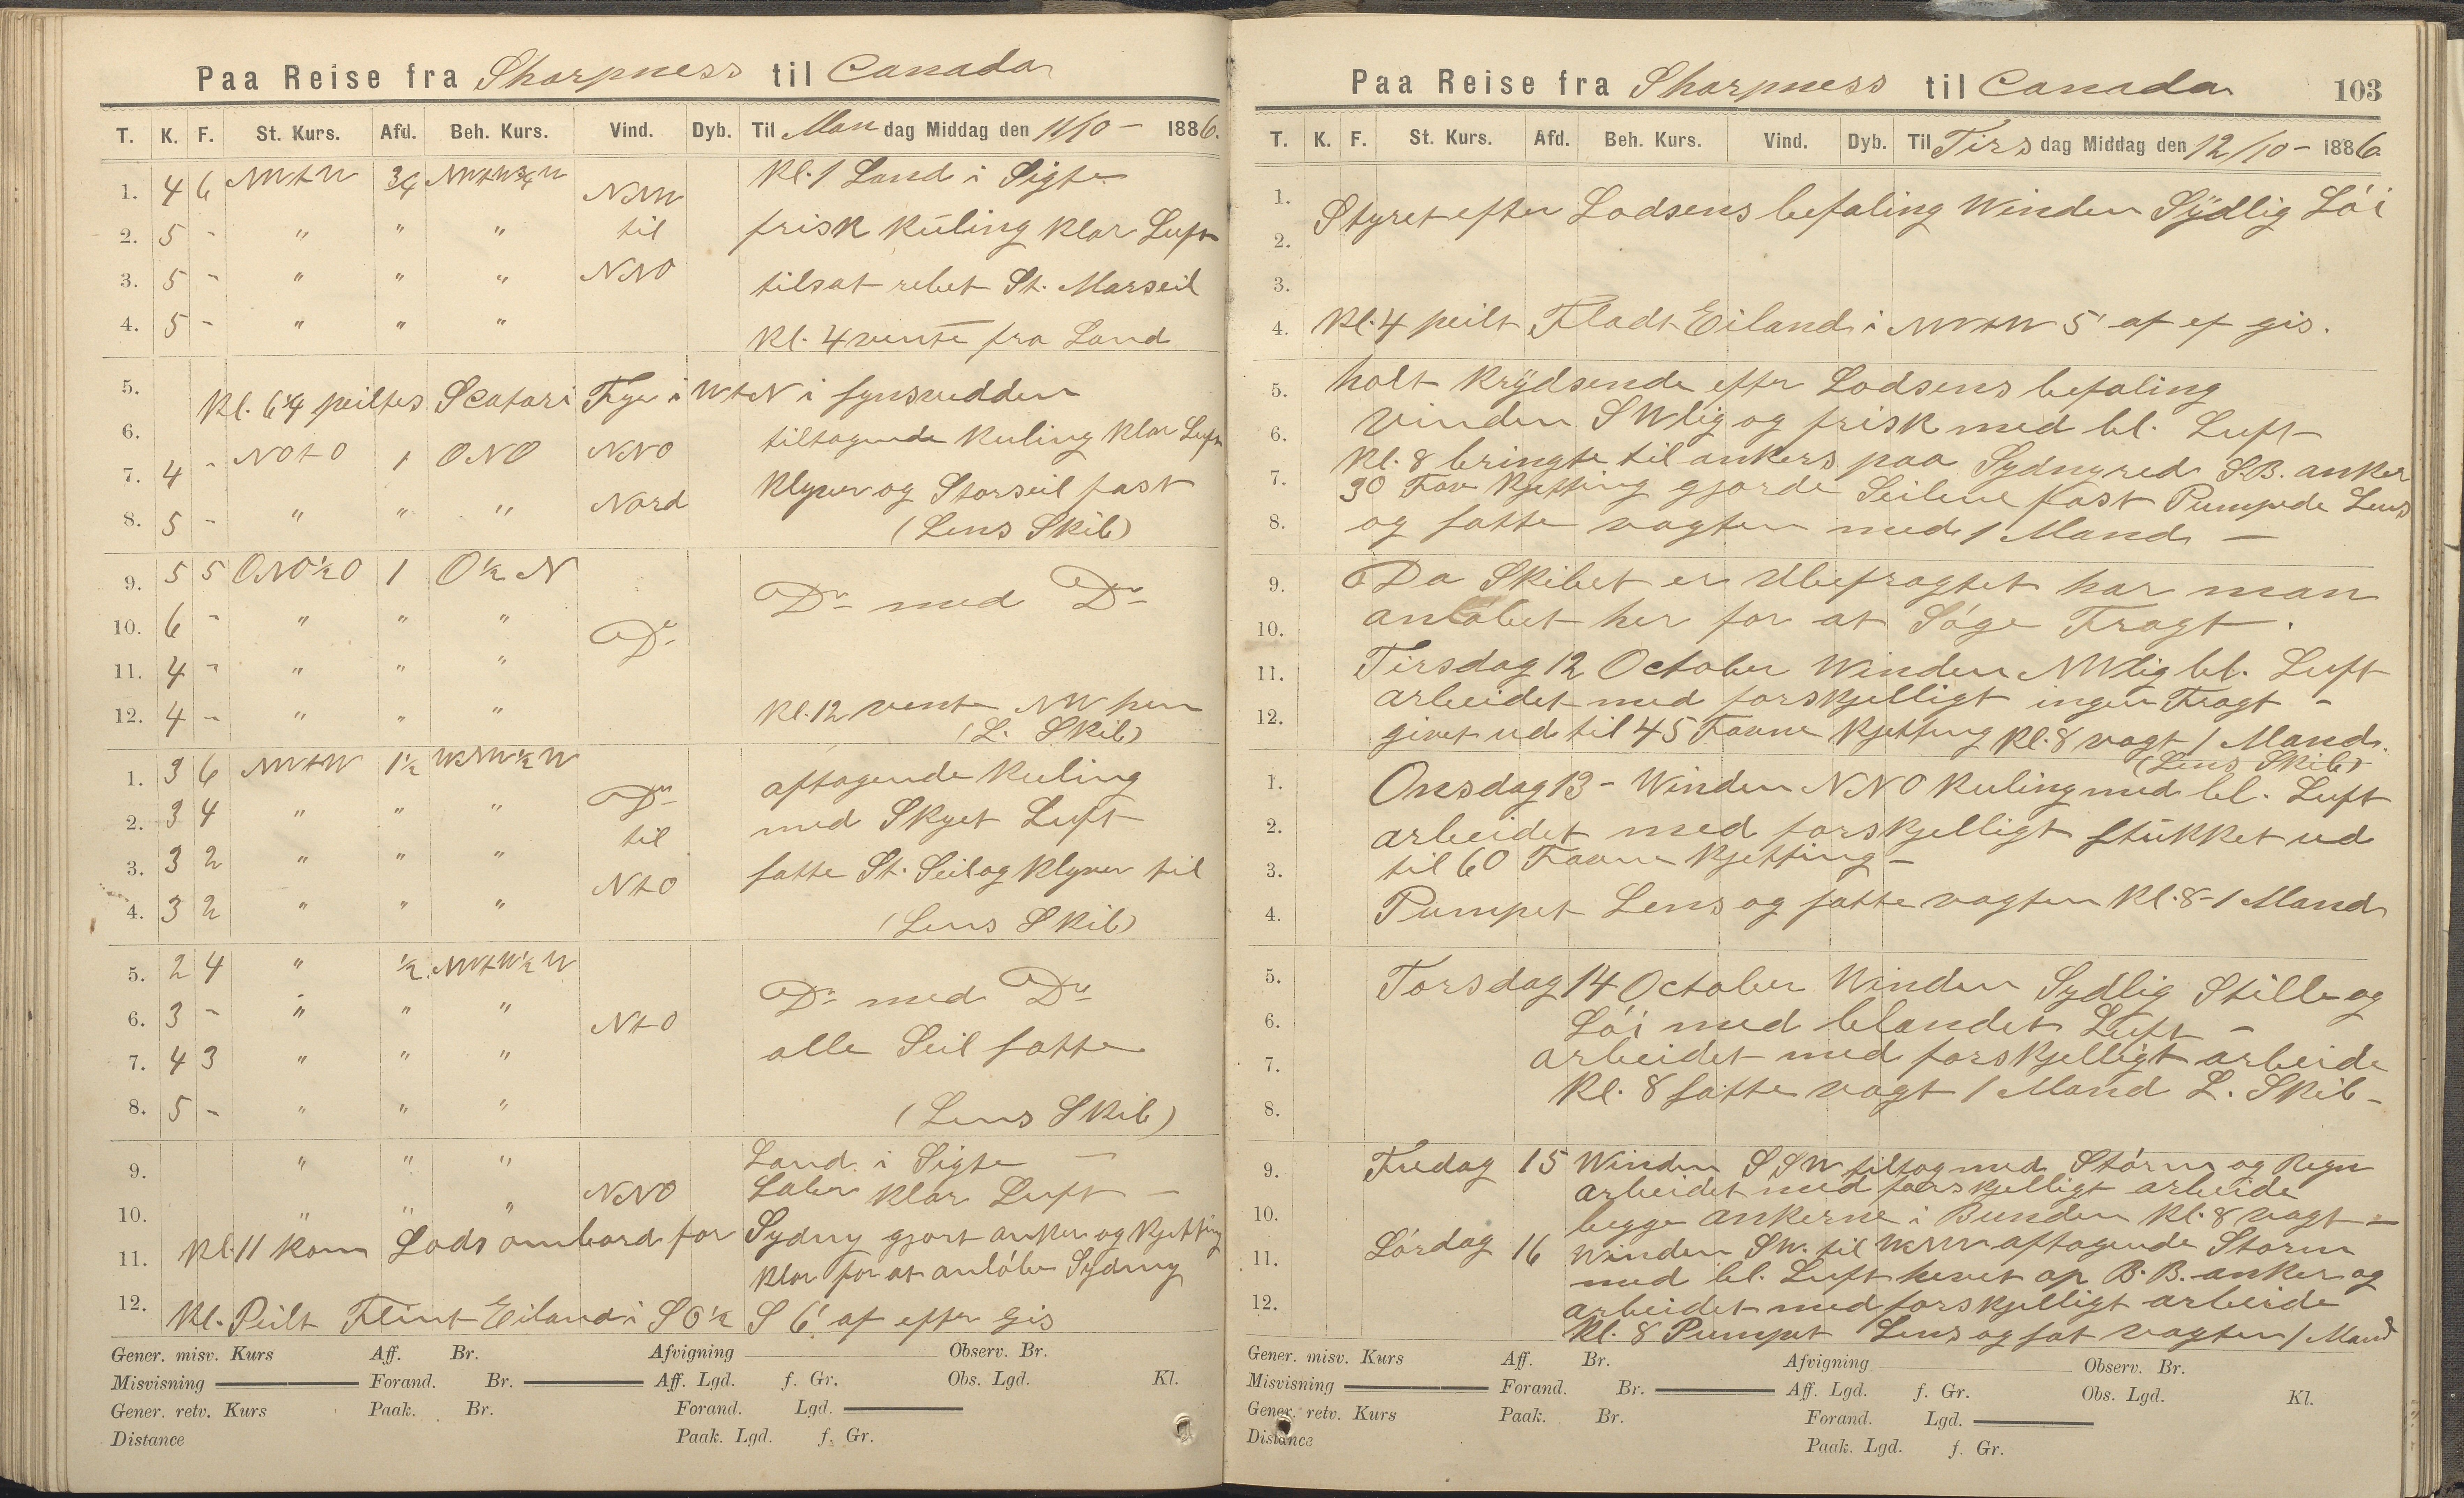 Paa Reise fra Sharpness til Canada
T. K. F. St. Kurs. Afd. Beh. Kurs. Vind. Dyb. Til Mandag Middag den 11/10 - 1886.
1. 4 6 NWtW 3/4 NWtW3/4W NNW Kl. 1 Land i Sigte
2. 5 - " " " til frisk Kuling klar Luft
3. 5 - " " " NNO tilsat rebet St. Marseil
4. 5 - " " " Kl. 4 vente fra Land
5. Kl. 6 1/4 peiltes Scatari Fyr i WtN i synsredden
6. tiltagende Kuling klar Luft
7. 4 - NOtO 1 ONO NNO Klyver og Storseil fast
8. 5 - " " " Nord (Lens Skib)
9. 5 5 ONO1/2O 1 O1/2N Do med Do
10. 6 - " " " Do
11. 4 - " " "
12. 4 - " " " Kl. 12 vente NW hen
(L. Skib)
1. 3 6 NWtW 1 1/2 WNW1/2W Do aftagende Kuling
2. 3 4 " " " til med Skyet Luft
3. 3 2 " " " NtO satte St. Seil og Klyver til
4. 3 2 " " " (Lens Skib)
5. 2 4 " 1/2 NWtW1/2W Do med Do
6. 3 - " " " NtO
7. 4 3 " " " alle Seil satte
8. 5 - " " " (Lens Skib)
9. " " " Land i Sigte -
10. " " " NNO Laber klar Luft -
11. Kl. 11 kom Lods ombord for Sydny gjort anker og Kjetting
klar for at anløbe Sydny
12. Kl. Peilt Flint Eiland i SO1/2S 6' af efter Gis
Gener. misv. Kurs Aff. Br. Afvigning Observ. Br.
Misvisning Forand. Br. Aff. Lgd. f. Gr. Obs. Lgd. Kl.
Gener. retv. Kurs Paak. Br. Forand. Lgd.
Distance Paak. Lgd. f. Gr.
Paa Reise fra Sharpness til Canada 103
T. K. F. St. Kurs. Afd. Beh. Kurs. Vind. Dyb. Til Tirsdag Middag den 12/10 - 1886.
1. Styret efter Lodsens befaling Winden Sydlig Löi
2.
3.
4. Kl. 4 peilt Fladt Eiland i NWtW 5' af ef gis.
5. holt Krydsende efter Lodsens befaling
6. Vinden SWlig og frisk med bl. Luft
7. Kl. 8 bringte til ankers paa Sydny red S.B. anker
30 Fav Kjetting gjorde Seilene fast Pumpede Lens
8. og satte vagten med 1 Mand -
9. Da Skibet er Ubefragtet har man
10. anløbet her for at Söge Fragt.
11. Tirsdag 12 October Winden NWlig bl. Luft
arbeidet med forskjelligt ingen Fragt -
12. givet ud til 45 Favne Kjetting Kl. 8 vagt 1 Mand.
(Lens Skib)
1. Onsdag 13 - Winden NNO Kuling med bl. Luft
2. arbeidet med forskjelligt stukket ud
3. til 60 Favne Kjetting -
4. Pumpet Lens og satte vagten Kl. 8 - 1 Mand
5. Torsdag 14 October Winden Sydlig Stille og
6. Löi med blandet Luft -
7. arbeidet med forskjelligt arbeide
8. Kl. 8 satte vagt 1 Mand L. Skib -
9. Fredag 15 Winden SSW tiltog med Störm og Regn
arbeidet med forskjelligt arbeide
10. begge ankerne i Bunden Kl. 8 vagt -
11. Lördag 16 Winden SW. til WNW aftagende Storm
med bl. Luft hevet op B.B. anker og
12. arbeidet med forskjelligt arbeide
Kl. 8 Pumpet Lens og sat vagten 1 Mand
Gener. misv. Kurs Aff. Br. Afvigning Observ. Br.
Misvisning Forand. Br. Aff. Lgd. f. Gr. Obs. Lgd. Kl.
Gener. retv. Kurs Paak. Br. Forand. Lgd.
Distance Paak. Lgd. f. Gr.